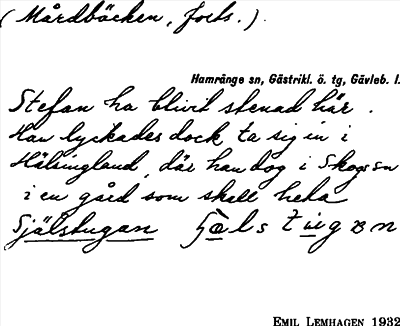 (Mårdbäcken, forts.).
Hamrånge sn, Gästrikl. ö. tg, Gävleb. l.
Stefan ha blivit stenad här.
Han lyckades dock ta sig in i
Hälsingland, där han dog i Skogs sn
i en gård som skall heta
Själstugan
EMIL LEMHAGEN 1932